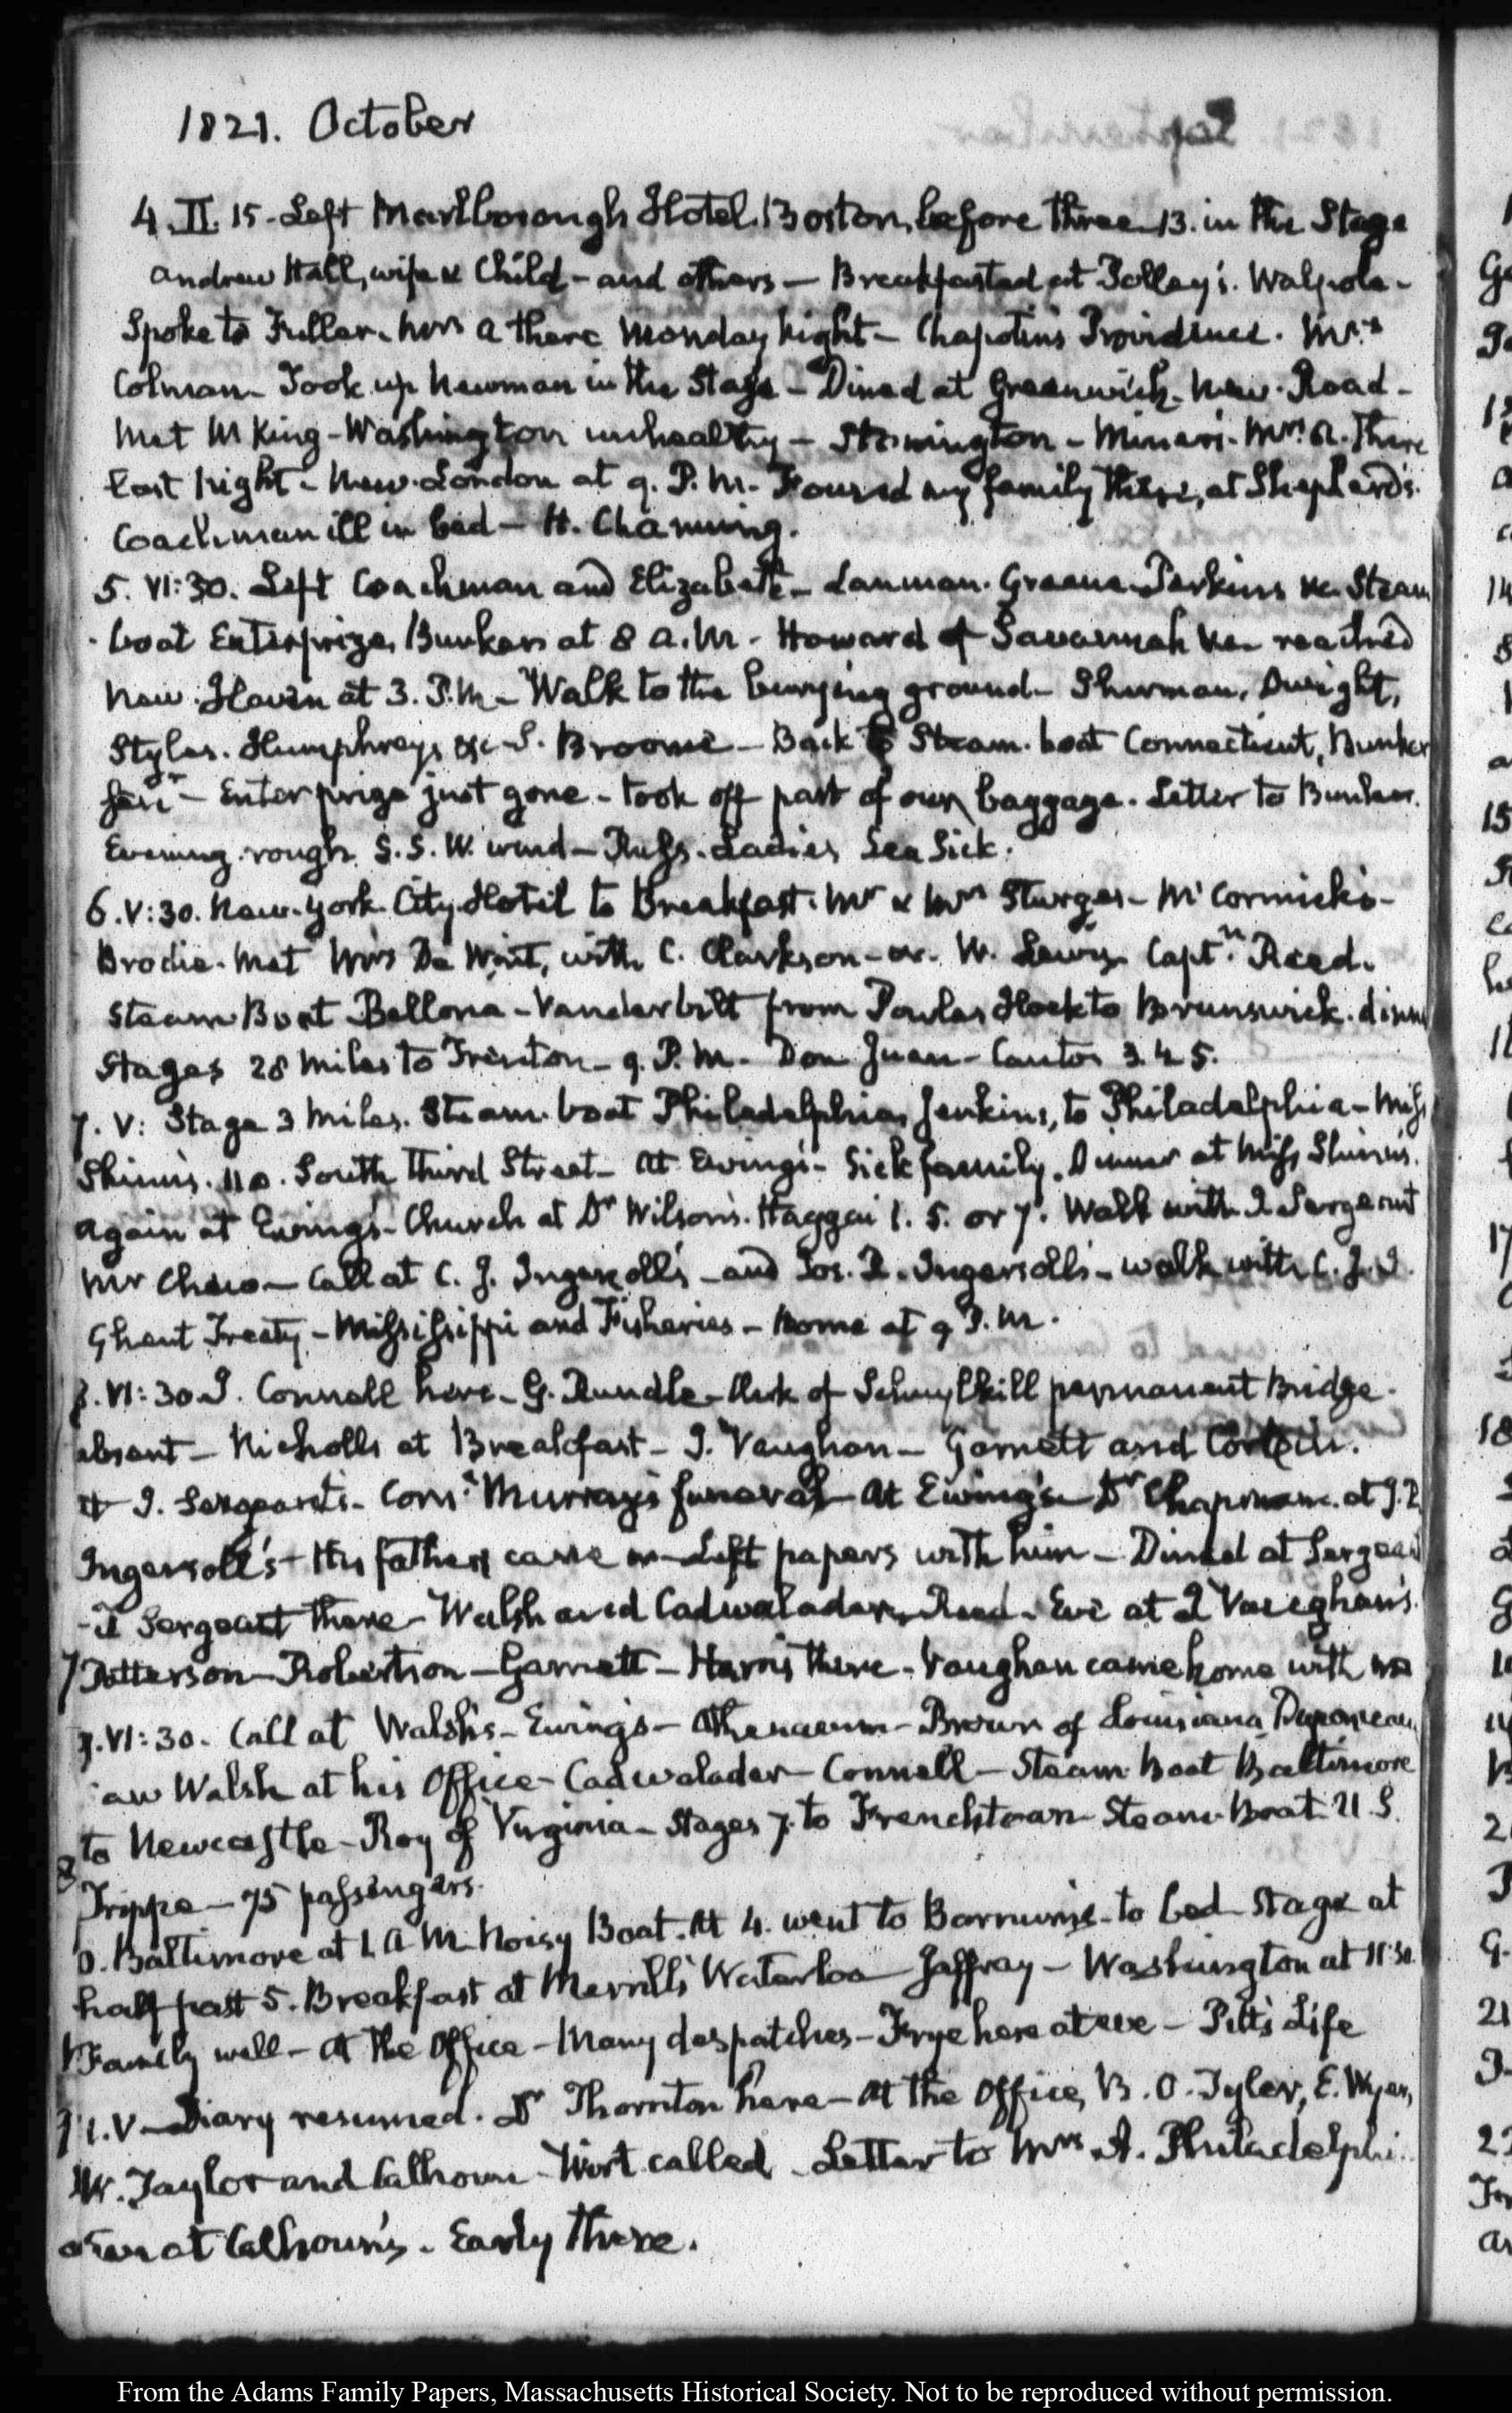 1821. October
4. II. 15. Left Marlborough Hotel, Boston, before three. 13. in the Stage
Andrew Hall, wife & Child - and others - Breakfasted at Polley's. Walpole -
Spoke to Fuller. Mrs A there Monday Night - Chapotin's Providence. Mrs
Colman - Took up Newman in the Stage - Dined at Greenwich. New Road -
Met M King - Washington unhealthy - Stonington - Minor's. Mrs A. There
last Night - New London at 9. P.M. Found my family there, at Shephard's.
Coachman ill in bed - H. Channing.
5. VI:30. Left Coachman and Elizabeth - Lanman. Greene. Perkins &c. Steam
boat Enterprize, Bunker at 8 A.M. - Howard of Savannah &c - reached
New Haven at 3. P.M. - Walk to the burying ground - Sherman, Dwight,
Styles. Humphreys &c S. Broome - Back to Steam boat Connecticut, Bunker
Senr - Enterprize just gone - took off part of our baggage. Letter to Bunker.
Evening rough S.S.W. wind - Russ. Ladies Sea Sick.
6. V:30. New-York City Hotel to Breakfast. Mr & Mrs Sturges - McCormick's -
Brodie. Met Mrs De Wint, with C. Clarkson - W. Lewis Captn Reed.
Steam Boat Bellona - Vanderbilt from Powles Hook to Brunswick. dinner
Stages 28 miles to Trenton - 9. P.M. - Don Juan - Cantos 3. 4 5.
7. V: Stage 3 miles. Steam-boat Philadelphia, Jenkins, to Philadelphia - Miss
Shinn's. 110. South third Street - At Ewing's - Sick family. Dinner at Miss Shinn's.
Again at Ewing's - Church at Dr Wilson's. Haggai 1. 5. or 7. Walk with J. Sergeant
Mr Chew - Call at C. J. Ingersoll's - and Jos. R. Ingersoll's - walk with C. J. I.
Ghent Treaty - Mississippi and Fisheries - Home at 9 P.M.
8. VI:30 J. Connell here - G. Rundle - Clerk of Schuylkill permanent Bridge.
absent - Nicholls at Breakfast - J. Vaughan - Garnett and
at J. Sergeant's - Comr Murray's funeral - At Ewing's - Dr Chapman. at J. R
Ingersoll's - His father came in - Left papers with him - Dined at Sergeant
- T Sergeant there - Walsh and Cadwalader, Reed. Eve at J Vaughan's
Patterson - Robertson - Garnett - Harris there - Vaughan came home with me
9. VI:30. Call at Walsh's - Ewing's - Athenaeum - Brown of Louisiana, Duponceau
saw Walsh at his Office - Cadwalader - Connell - Steam Boat Baltimore
to Newcastle - Roy of Virginia - Stages 7. to Frenchtown Steam Boat U.S.
Trippe - 75 passengers.
0. Baltimore at 1 A M. Noisy Boat. At 4. went to Barnum's - to bed Stage at
half past 5. Breakfast at Merrill's Waterloo - Jaffray - Washington at 11:30.
Family well - At the Office - Many despatches - Frye here at eve - Pitt's Life
11. V - Diary resumed. Dr Thornton here - At the Office, B. O. Tyler, E. Wyer,
W. Taylor and Calhoun - Wirt called - Letter to Mrs A. Philadelphi
at Calhoun's. Early there.
From the Adams Family Papers, Massachusetts Historical Society. Not to be reproduced without permission.